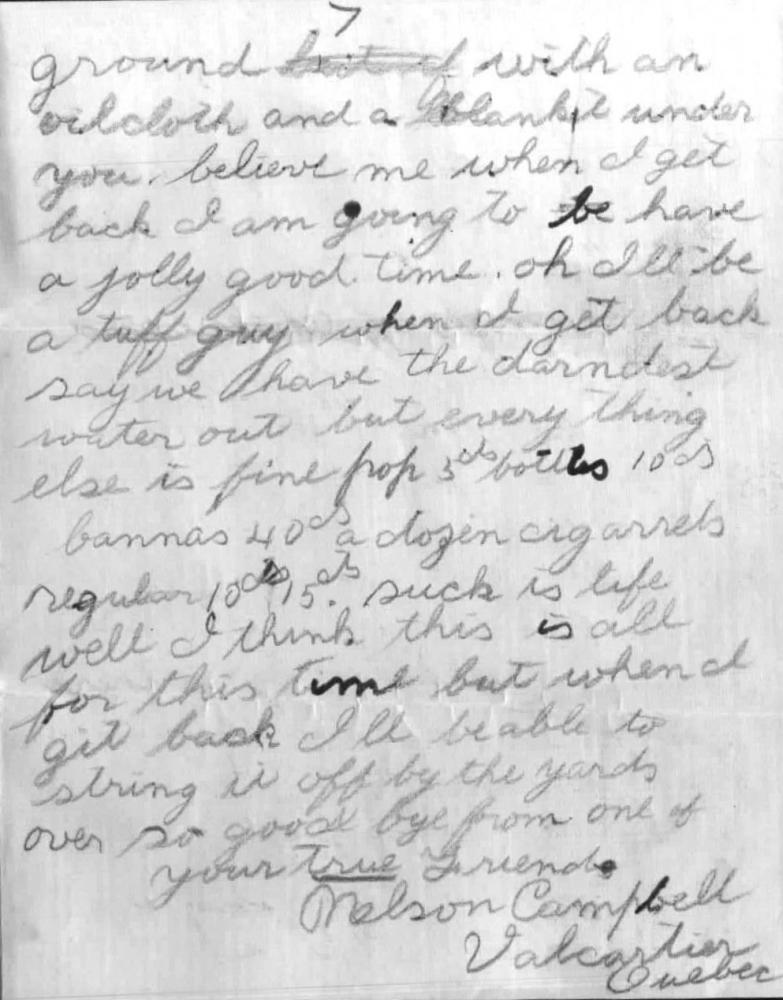 7
ground with an
oilcloth and a blanket under
you. believe me when I get
back I am going to be have
a jolly good time. oh I'll be
a tuff guy when I get back
say we have the darndest
water out but every thing
else is fine pop 5cts bottles 10cts
bannas 40cts a dozen cigarrets
regular 10cts 15cts. suck is life
well I think this is all
for this time but when I
git back I'll be able to
string it off by the yards
over so good bye from one of
your true Friends
Nelson Campbell
Valcartier
Quebec